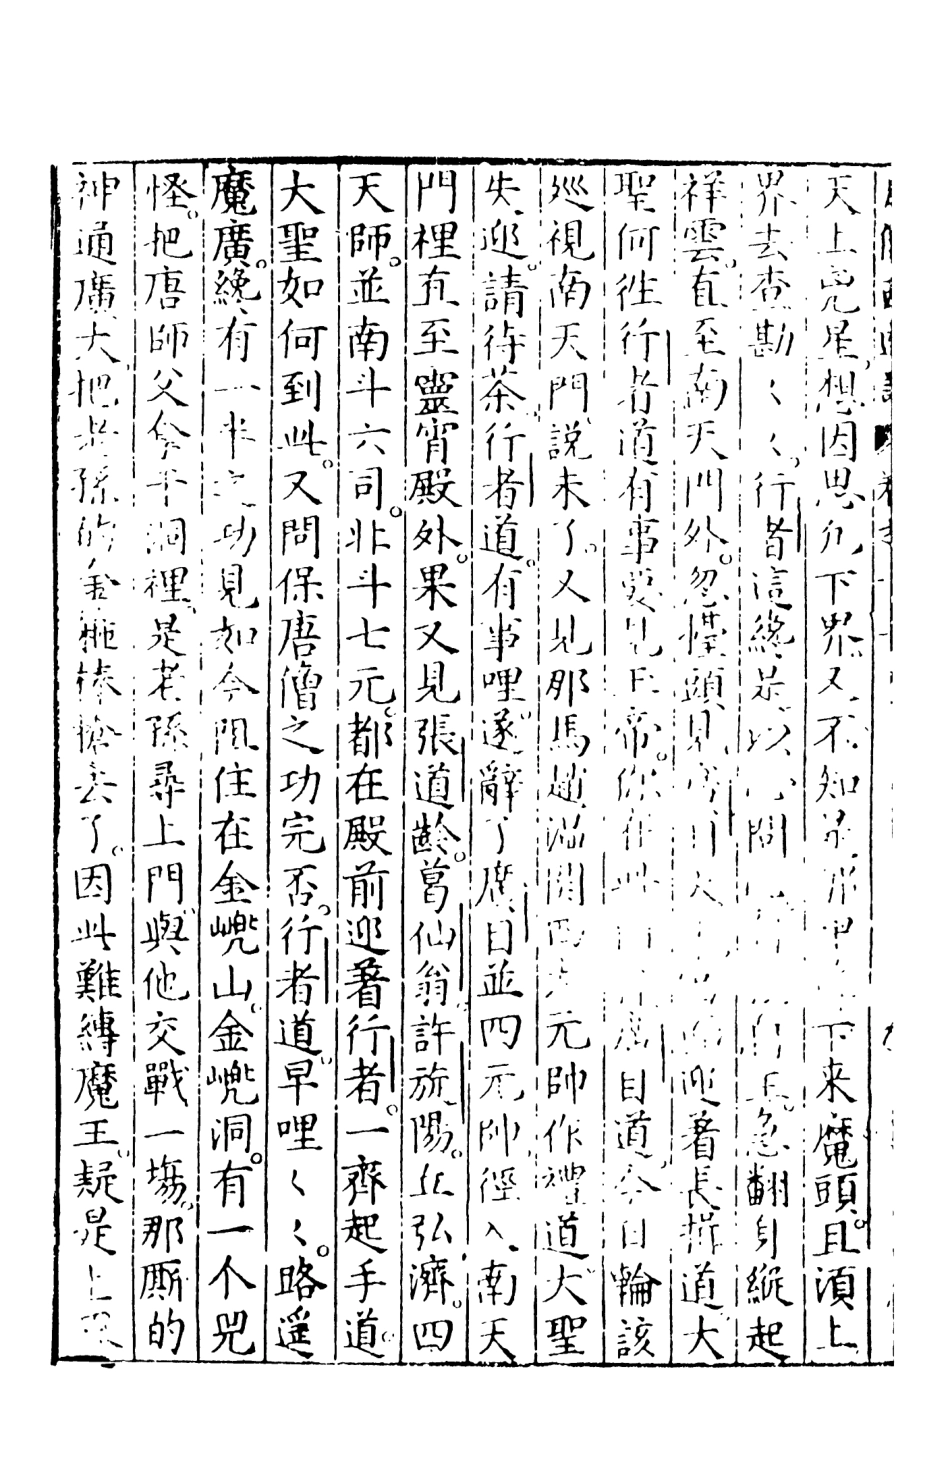 天上兇星想因思凡下界又不知是那甲下来魔頭且須上
界去查勘〻〻行者這纔是以心問心自急翻身縱起
祥雲直至南天門外忽擡頭見廣目天迎着長揖道大
聖何徃行者道有事要見玉帝你在此何廣目道今日輪該
廵視南天門説未了又見那馬趙温関四大元帥作禮道大聖
失迎請待茶行者道有事哩遂辭了廣目並四元帥徑入南天
門裡直至靈霄殿外果又見張道齡葛仙翁許旌陽丘弘濟四
天師並南斗六司北斗七元都在殿前迎着行者一齊起手道
大聖如何到此又問保唐僧之功完否行者道早哩〻〻路遥
魔廣纔有一半之功見如今阻住在金𠒋山金𠒋洞有一个兕
怪把唐師父拿于洞裡是老孫尋上門與他交戰一塲那厮的
神通廣大把老孫的金箍棒搶去了因此難縛魔王疑是上界